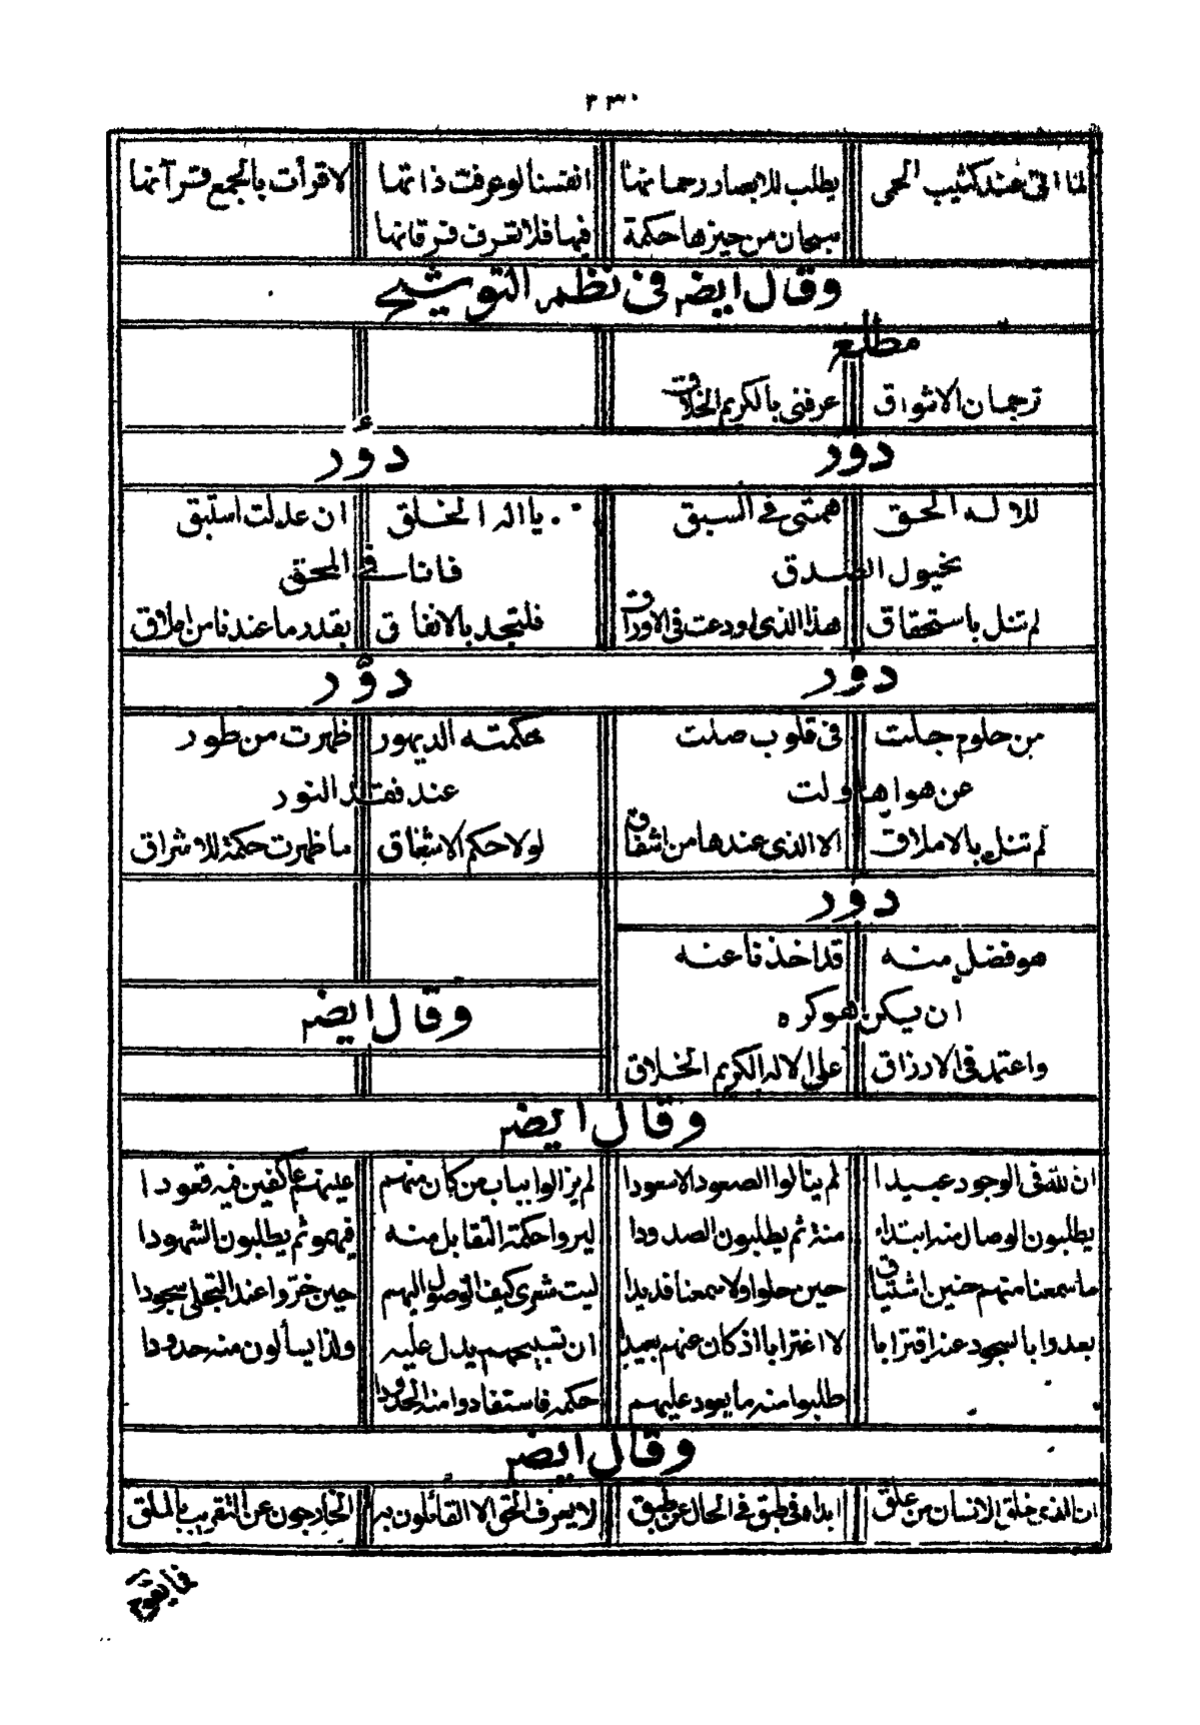 ٢٣٠
لنا التى عند كثيب الحمى يطلب للابصار رحمانها انفسنا لو عرفت ذاتها لا قرأت بالجمع قرآنها
سبحان من حيزها حكمة فيها فلا تعرف فرقانها
وقال ايضه فى نظم التوشيح
مطلع
ترجمان الاشواق عرفنى بالكريم الخلاق
دور دور
للاله الحق همتى فى السبق يا اله الخلق ان عدلت استبق
بخيول الصدق فانا فى المحق
لم تنل باستحقاق هذا الذى اودعت فى الاوراق فلتجد بالانفاق بقدر ما عندنا من املاق
دور دور
من حلوم جلت فى قلوب صلت حكمته الديهور ظهرت من طور
عن هواها ولت عند فقد النور
لم تنل بالاملاق الا الذى عندها من اشفاق لولا حكم الاشفاق ما ظهرت حكمة للاشراق
دور
هو فضل منه قد اخذنا عنه
ان يكن هو كره
واعتمد فى الارزاق على الاله الكريم الخلاق
وقال ايضه
وقال ايضه
ان لله فى الوجود عبيدا لم ينالوا الصعود الا سعودا لم يزالوا بباب من كان منهم عينهم عاكفين فيه قعودا
يطلبون الوصال منه ابتداء منة ثم يطلبون الصدودا ليروا حكمة التقابل منه فيهمو ثم يطلبون الشهودا
ما سمعنا منهم حنين اشتياق حين حلوا ولا سمعنا فديدا ليت شعرى كيف الوصول اليهم حين خروا عند التجلى سجودا
بعدوا بالسجود عند اقترابا لا اغترابا اذ كان عنهم بعيدا ان تسبيحهم يدل عليه ولذا يسألون منه حدودا
طلبوا منه ما يعود عليهم حكمه فاستفادوا منه الحدودا
وقال ايضه
ان الذى خلق الانسان من علق ابداه فى طبق فى الحال عن طبق لا يعرف الحق الا القائلون به الخارجون عن التقريب بالملق
فما يقوم